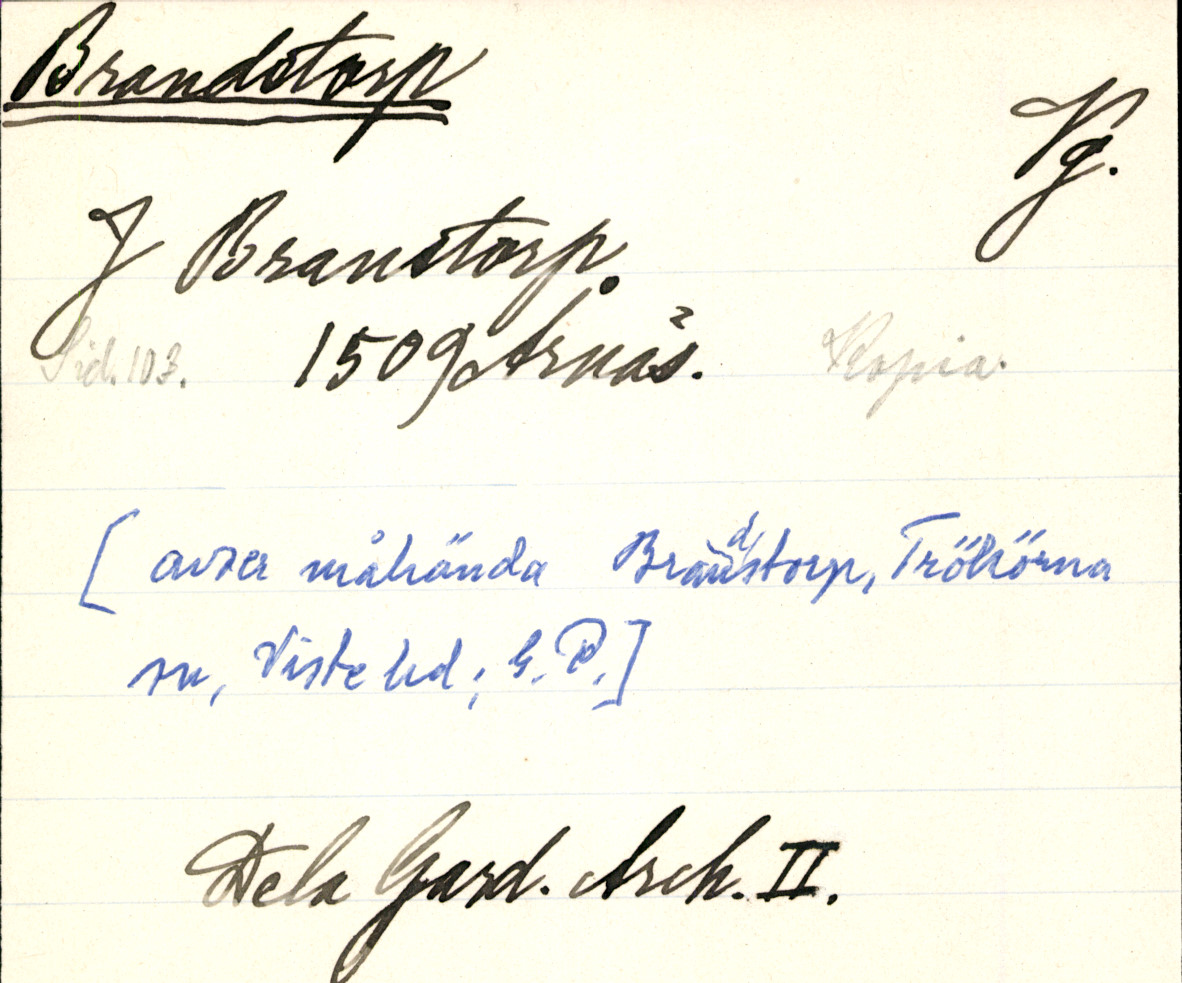 Brandstorp
Vg.
J Branstorp.
Sid. 103. 1509 Arnäs. Kopia.
[avser måhända Brandstorp, Trökörna
sn, Viste hd; G. P.]
De la Gard. Arch. II.